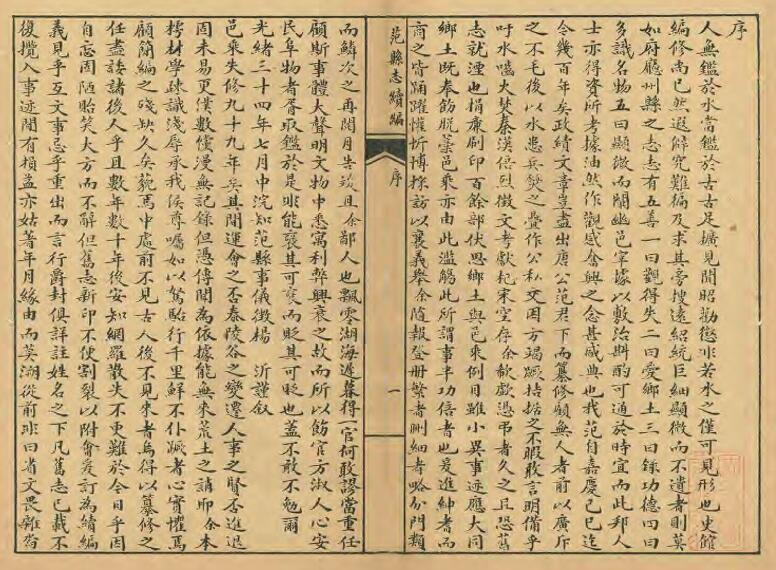 序
人無鑑於水當鑑於古古足擴見聞昭勸懲非若水之僅可見形也史館
編修尚已然遐稽究難徧及求其旁搜遠紹統巨細顯微而不遺者則莫
如府廳州縣之志志有五善一曰觀得失二曰愛鄉土三曰錄功德四曰
多識名物五曰顯微而闡幽邑宰據以敷治斟酌可通於時宜而此邦人
士亦得資所考據油然作觀感奮興之念甚盛典也我范自嘉慶己巳迄
今幾百年矣政績文章豈盡出唐公范君下而纂修顧無人者前以廣斥
之不毛後以水患兵燹之疊作公私交困方竭蹶拮据之不暇敢言明備乎
吁水嚙火焚秦漢倍烈徵文考獻杞宋空存余欷歔憑弔者久之且恐舊
志就湮也捐廉刷印百餘部伏思鄉土與邑乘例目雖小異事迹應大同
鄉土既奉飭脫藁邑乘亦由此濫觴此所謂事半功倍者也爰進紳耆而
商之皆踴躍懽忻博採訪以襄義舉余隨報登冊繁者刪細者略分門類
范縣志續編
序
一
而鱗次之再閱月告竣且余鄙人也飄零湖海遲暮得一官何敢謬當重任
顧斯事體大聲明文物中悉寓利弊興衰之故而所以飭官方淑人心安
民阜物者胥取鑑於是非能褒其可褒而貶其可貶也蓋不敢不勉爾
光緒三十四年七月中浣知范縣事儀徵楊 沂謹叙
邑乘失修九十九年矣其間運會之否泰陵谷之變遷人事之賢否進退
固未易更僕數懂漫無記錄但憑傳聞為依據能無來荒土之誚耶余本
樗材學疎識淺辱承我侯尊囑如以駑駘行千里鮮不仆蹶者心實懼焉
顧簡編之殘缺久矣藐焉中處前不見古人後不見來者烏得以纂修之
任盡諉諸後人乎且數年數十年後安知網羅散失不更難於今日乎因
自忘固陋貽笑大方而不辭但舊志新印不便割裂以附會爰訂為續編
義見乎互文事忌乎重出而言行爵封俱詳註姓名之下凡舊志已載不
復攬入事迹間有損益亦姑著年月緣由而莫淆從前非曰省文畏雜沓